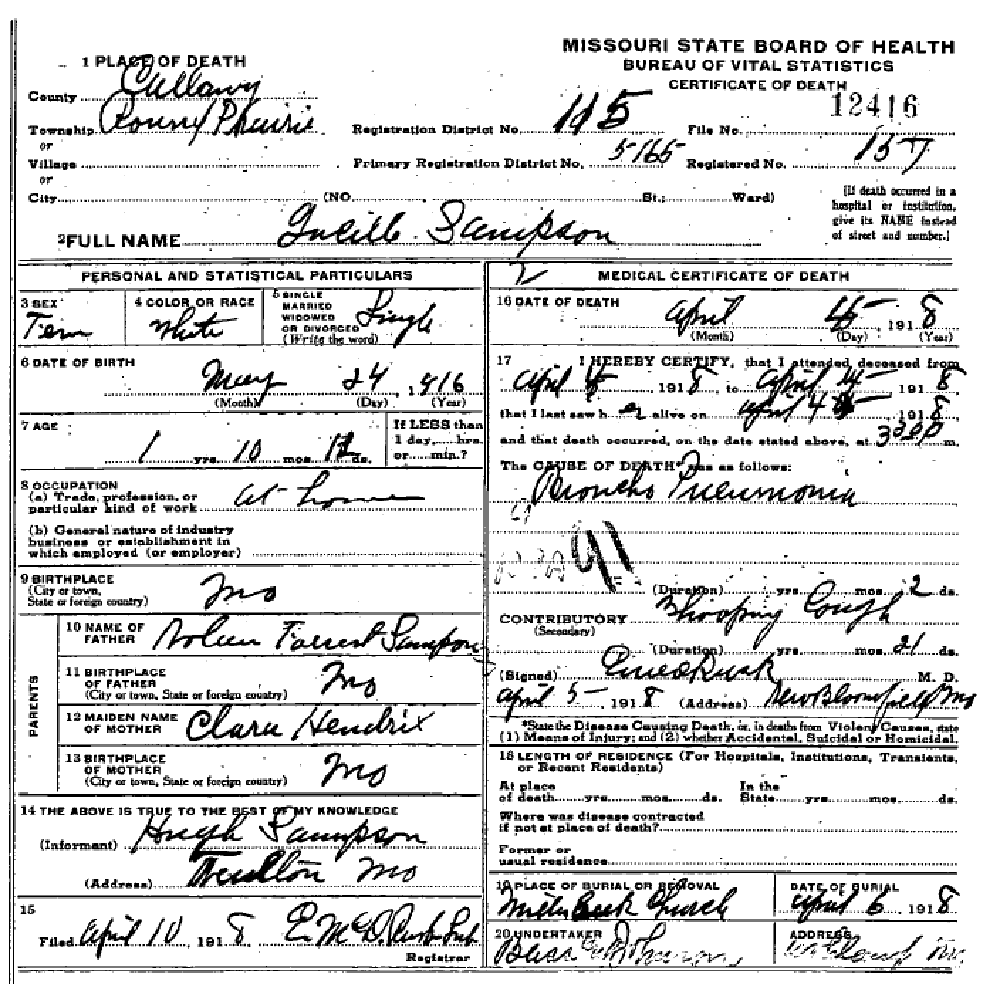 MISSOURI STATE BOARD OF HEALTH
BUREAU OF VITAL STATISTICS
CERTIFICATE OF DEATH
1 PLACE OF DEATH
County Callaway
Township Round Prairie
or
Village
or
City (NO. St.; Ward)
Registration District No. 115
File No. 12416
Primary Registration District No. 5165
Registered No. 157
[If death occurred in a
hospital or institution,
give its NAME instead
of street and number.]
2 FULL NAME Lucille Sampson
PERSONAL AND STATISTICAL PARTICULARS
3 SEX
Fem
4 COLOR OR RACE
White
5 SINGLE
MARRIED
WIDOWED
OR DIVORCED
(Write the word)
Single
6 DATE OF BIRTH
May 24, 1916
(Month) (Day) (Year)
7 AGE
1 yrs. 10 mos. ds.
If LESS than
1 day, hrs.
or min.?
8 OCCUPATION
(a) Trade, profession, or
particular kind of work at home
(b) General nature of industry
business or establishment in
which employed (or employer)
9 BIRTHPLACE
(City or town,
State or foreign country)
Mo
PARENTS
10 NAME OF
FATHER
Forrest Sampson
11 BIRTHPLACE
OF FATHER
(City or town, State or foreign country)
Mo
12 MAIDEN NAME
OF MOTHER
Clara Hendrix
13 BIRTHPLACE
OF MOTHER
(City or town, State or foreign country)
Mo
14 THE ABOVE IS TRUE TO THE BEST OF MY KNOWLEDGE
(Informant) Hugh Sampson
(Address) Fulton Mo
15
Filed April 10, 1918
Registrar
2
MEDICAL CERTIFICATE OF DEATH
16 DATE OF DEATH
April 1918
(Month) (Day) (Year)
17 I HEREBY CERTIFY, that I attended deceased from
April 1918, to April 1918
that I last saw her alive on April 4 1918
and that death occurred, on the date stated above, at 3 30 P m.
The CAUSE OF DEATH* was as follows:
Broncho Pneumonia
91
(Duration) yrs. mos. 2 ds.
CONTRIBUTORY Whooping Cough
(Secondary)
(Duration) yrs. mos. 21 ds.
(Signed) M. D.
April 5 1918 (Address) New Bloomfield Mo
*State the Disease Causing Death, or, in deaths from Violent Causes, state
(1) Means of Injury; and (2) whether Accidental, Suicidal or Homicidal.
18 LENGTH OF RESIDENCE (For Hospitals, Institutions, Transients,
or Recent Residents)
At place
of death yrs. mos. ds.
In the
State yrs. mos. ds.
Where was disease contracted
if not at place of death?
Former or
usual residence
19 PLACE OF BURIAL OR REMOVAL
Church
DATE OF BURIAL
April 6, 1918
20 UNDERTAKER
ADDRESS